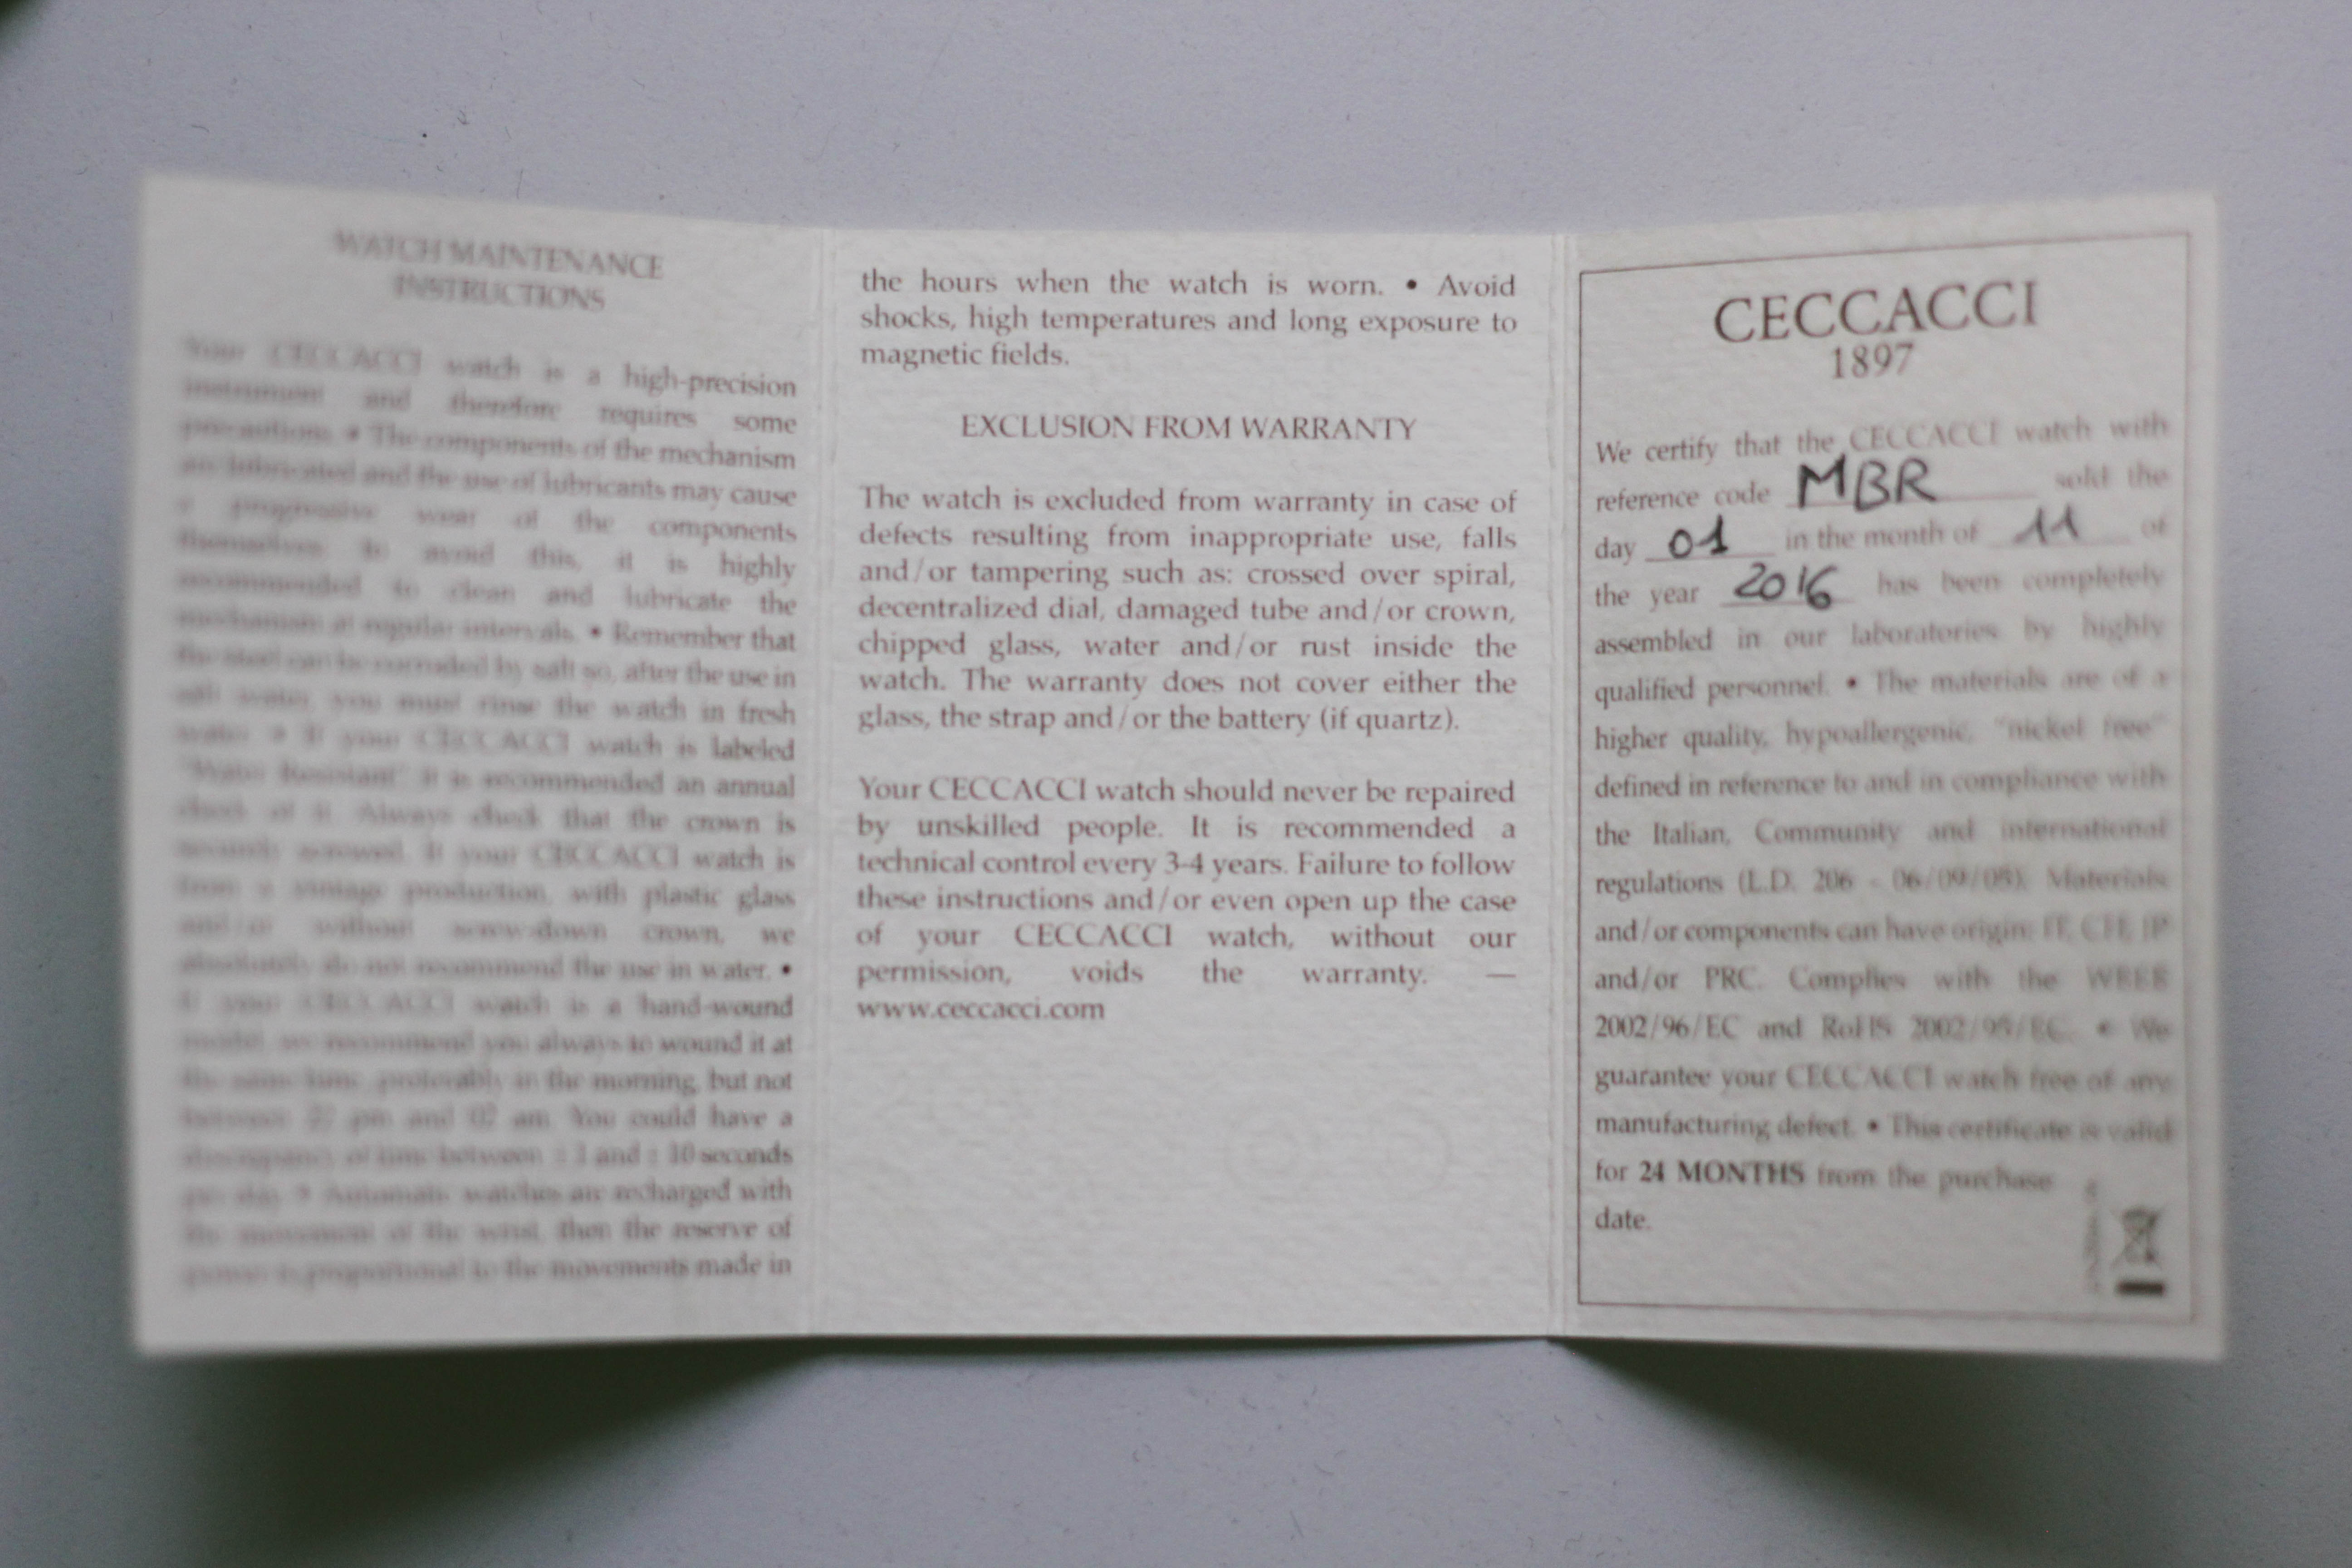 WATCH MAINTENANCE
INSTRUCTIONS
Your CECCACCI watch is a high-precision
instrument and therefore requires some
precautions. • The components of the mechanism
are lubricated and the use of lubricants may cause
a progressive wear of the components
themselves: to avoid this, it is highly
recommended to clean and lubricate the
mechanism at regular intervals. • Remember that
the steel can be corroded by salt so, after the use in
salt water, you must rinse the watch in fresh
water. • If your CECCACCI watch is labeled
"Water Resistant" it is recommended an annual
check of it. Always check that the crown is
securely screwed. If your CECCACCI watch is
from a vintage production, with plastic glass
and/or without screw-down crown, we
absolutely do not recommend the use in water. •
If your CECCACCI watch is a hand-wound
model, we recommend you always to wound it at
the same time, preferably in the morning, but not
between pm and 02 am. You could have a
discrepancy of time between and 10 seconds
per day. • Automatic watches are recharged with
the movement of the wrist, then the reserve of
power is proportional to the movements made in
the hours when the watch is worn. • Avoid
shocks, high temperatures and long exposure to
magnetic fields.
EXCLUSION FROM WARRANTY
The watch is excluded from warranty in case of
defects resulting from inappropriate use, falls
and/or tampering such as: crossed over spiral,
decentralized dial, damaged tube and/or crown,
chipped glass, water and/or rust inside the
watch. The warranty does not cover either the
glass, the strap and/or the battery (if quartz).
Your CECCACCI watch should never be repaired
by unskilled people. It is recommended a
technical control every 3-4 years. Failure to follow
these instructions and/or even open up the case
of your CECCACCI watch, without our
permission, voids the warranty. —
www.ceccacci.com
CECCACCI
1897
We certify that the CECCACCI watch with
reference code MBR sold the
day 01 in the month of 11 of
the year 2016 has been completely
assembled in our laboratories by highly
qualified personnel. • The materials are of a
higher quality, hypoallergenic, "nickel free"
defined in reference to and in compliance with
the Italian, Community and international
regulations (L.D. 206 - 06/09/05). Materials
and/or components can have origin: IT, CH, JP
and/or PRC. Complies with the WEEE
2002/96/EC and RoHS 2002/95/EC. • We
guarantee your CECCACCI watch free of any
manufacturing defect. • This certificate is valid
for 24 MONTHS from the purchase
date.